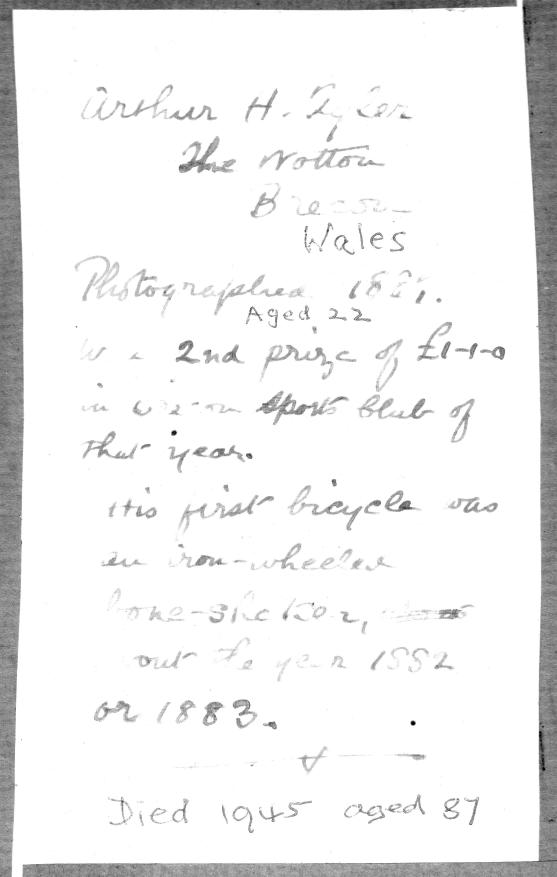 Arthur H. Tyler
The Notton
Brecon
Wales
Photographed
Aged 22
2nd prize of £1-1-0
in sports Club of
that year.
His first bicycle was
an iron-wheeled
bone-shaker,
the year 1882
or 1883.
Died 1945 aged 87